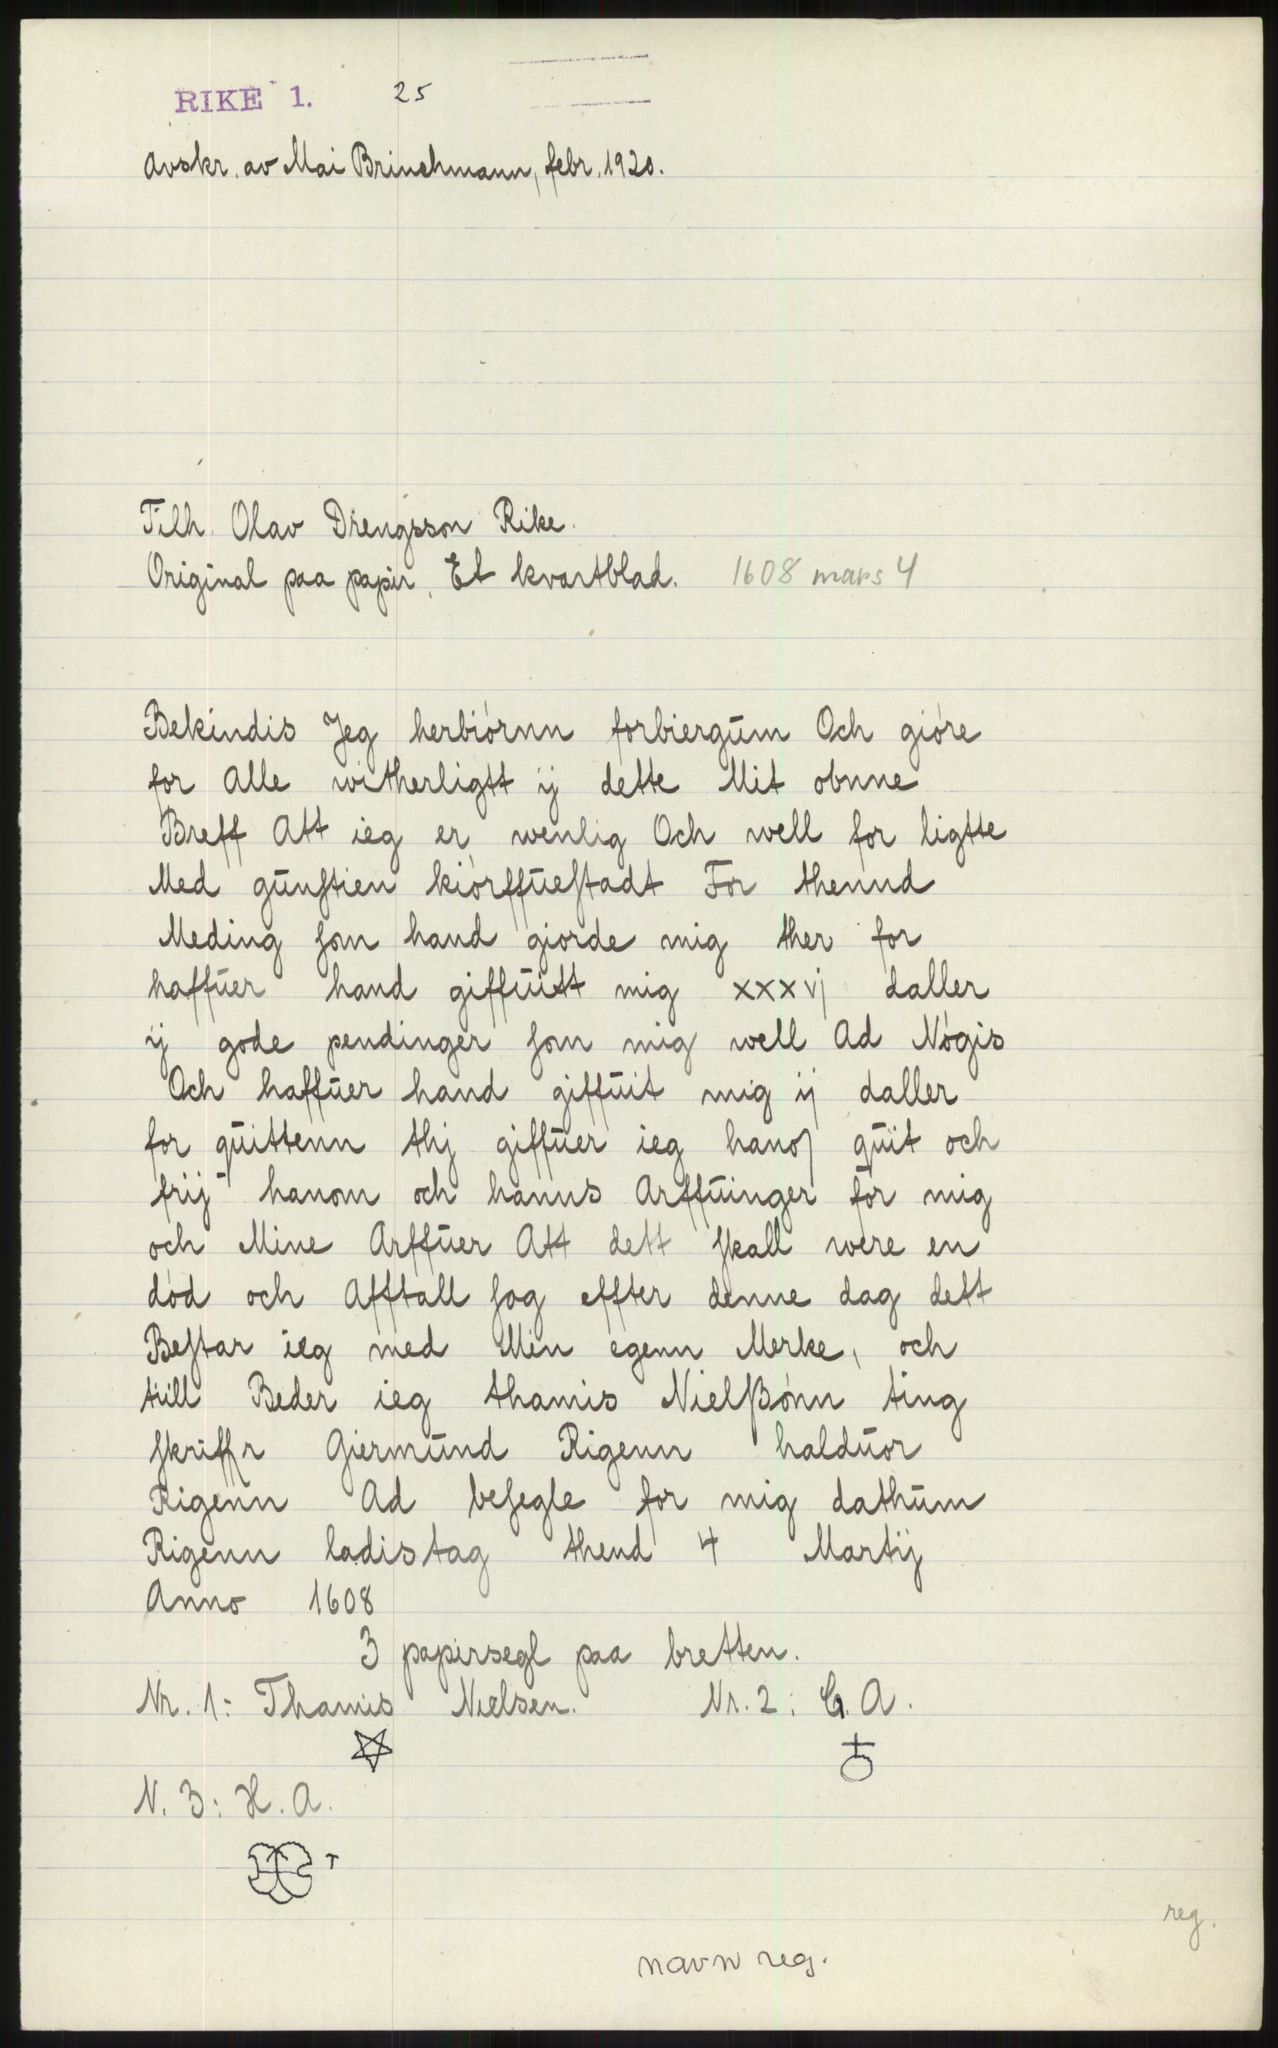 RIKE 1. 25
Avskr. av Mai Brinchmann, febr. 1920.
Tilh. Olav Drengsson Rike.
Original paa papir. Et kvartblad. 1608 mars 4
Bekindis Jeg herbiórnn forbiergūm Och gióre
for Alle witherligtt ij dette Mit obnne
Breff Att ieg er wenlig Och well for ligtte
Med gūnſtien kiórffūeſtadt For thennd
Meding ſom hand giorde mig ther for
haffūer hand giffūitt mig xxxvj daller
ij gode pendinger ſom mig well Ad Nógis
Och haffūer hand giffūit mig ij daller
for qūittenn thj giffūer ieg hanoȷ qūit och
frij hanom och hanns Arffūinger for mig
och Mine Arffūer Att dett ſkall were en
dód och Afftall ſag effter denne dag dett
Beſtar ieg med Min egenn Merke, och
till Beder ieg thamis Nielßónn ting
ſkriffr Giermūnd Rigenn haldūor
Rigenn Ad beſegle for mig dathūm
Rigenn ladistag thend 4 Martij
Anno 1608
3 papirsegl paa bretten.
Nr. 1: Thamis Nielsen. Nr. 2: G. A.
N. 3: H. A.
reg.
navn reg.